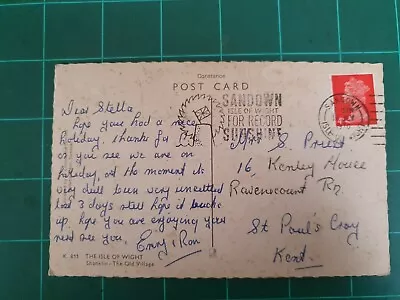 Constance
POST CARD
SANDOWN
ISLE OF WIGHT
FOR RECORD
SUNSHINE
Dear Stella
hope you had a nice
holiday, thanks for
as you see we are on
holiday, at the moment its
very dull been very unsettled
last 3 days still hope it bucks
up. hope you are enjoying yours
need see you,
Emmy & Ron
Mrs S. Priest
16, Kemley House
Ravenscourt Rd
St Paul's Cray
Kent.
K 811 THE ISLE OF WIGHT
Shanklin - The Old Village